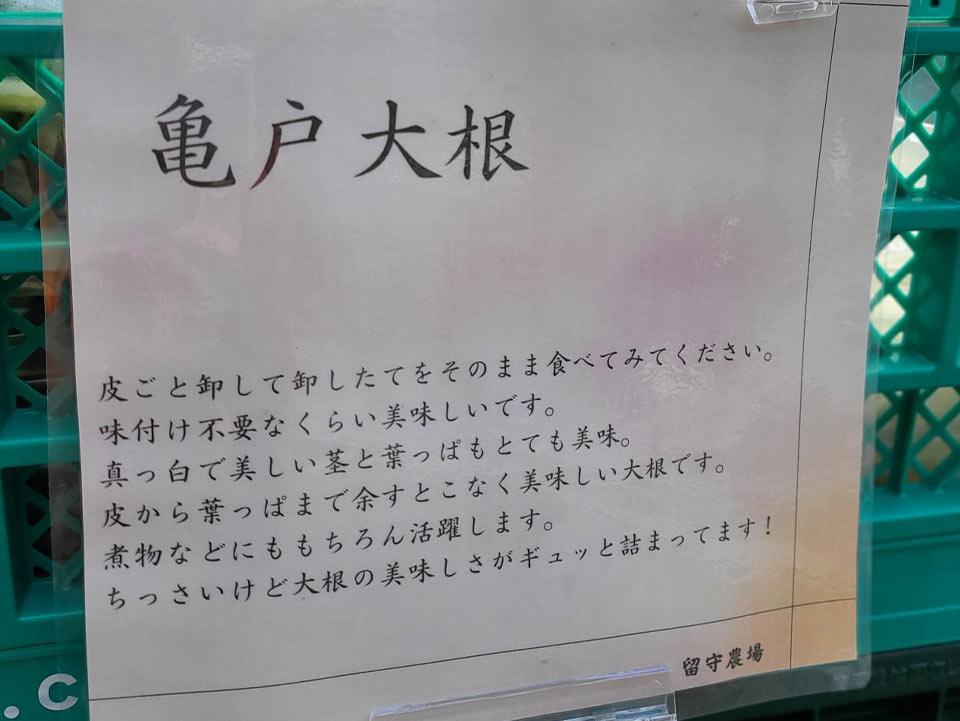 亀戸大根
皮ごと卸して卸したてをそのまま食べてみてください。
味付け不要なくらい美味しいです。
真っ白で美しい茎と葉っぱもとても美味。
皮から葉っぱまで余すとこなく美味しい大根です。
煮物などにももちろん活躍します。
ちっさいけど大根の美味しさがギュッと詰まってます！
留守農場
. C